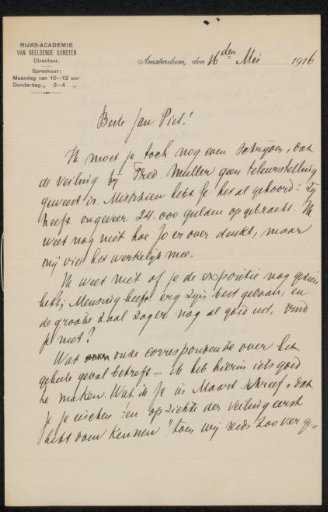 RIJKS-ACADEMIE
VAN BEELDENDE KUNSTEN
Directeur.
Spreekuur:
Maandag van 10–12 uur
Donderdag „ 2–4 „
Amsterdam, den 16den Mei 1916.
Beste Jan Piet!
Ik moet je toch nog even schrijven, dat
de veiling bij Fred Muller geen teleurstelling
geweest is. Misschien hebt je het al gehoord: zij
heeft ongeveer 24.000 gulden opgebracht. Ik
weet nog niet hoe je er over denkt, maar
mij viel het werkelijk mee.
Ik weet niet of je de expositie nog gezien
hebt; Mensing heeft erg zijn best gedaan, en
de groote zaal zag er nog al goed uit, vind
je niet?
Wat onze correspondentie over het
geheele geval betreft – Ik heb hierin iets goed
te maken. Wat ik je in Maart schreef „dat
je je eischen ten opzichte der veiling eerst
hebt doen kennen" toen wij reeds zoo ver ge„